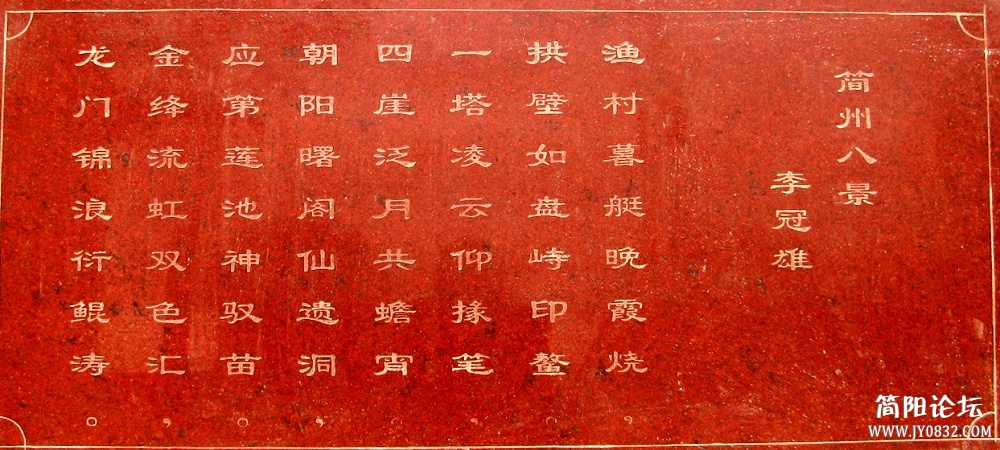 简州八景
李冠雄
渔村暮艇晚霞烧，
拱壁如盘峙印鳌。
一塔凌云仰掾笔，
四崖泛月共蟾宵。
朝阳曙阁仙遗洞，
应第莲池神驭苗。
金绛流虹双色汇，
龙门锦浪衍鲲涛。
简阳论坛
WWW.JY0832.COM